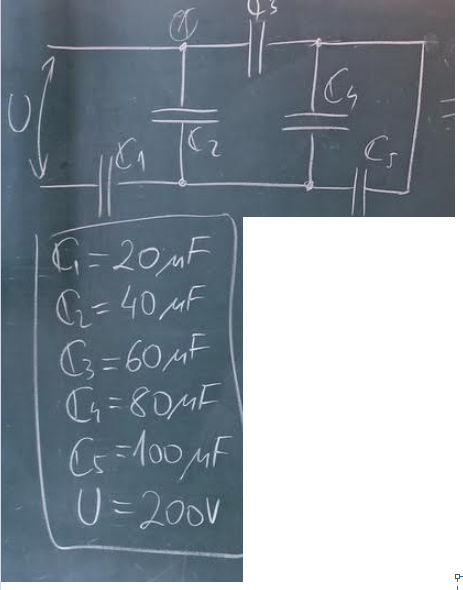 C3
U
C2
C4
C1
C5
=
C1 = 20 μF
C2 = 40 μF
C3 = 60 μF
C4 = 80 μF
C5 = 100 μF
U = 200V